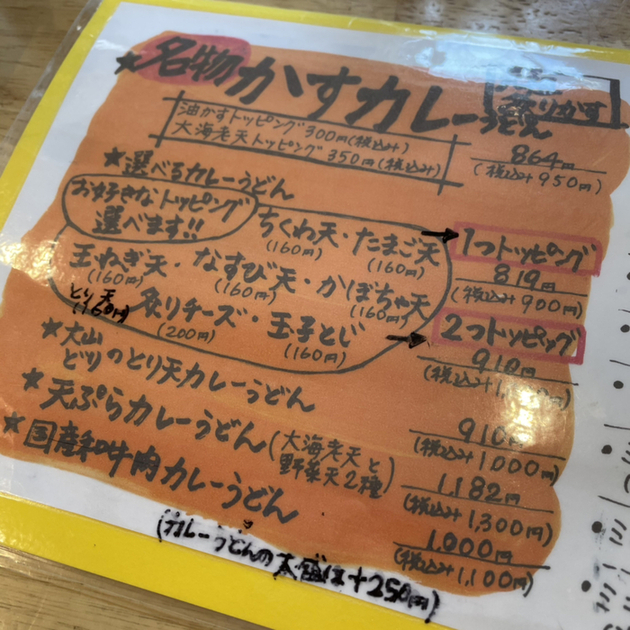 ★名物 かすカレーうどん
炙りかす
油かすトッピング300円(税込み)
大海老天トッピング350円(税込み)
864円
(税込み950円)
★選べるカレーうどん
お好きなトッピング
選べます!!
ちくわ天・たまご天
(160円) (160円)
玉ねぎ天・なすび天・かぼちゃ天
(160円) (160円) (160円)
とり天
(160円)
炙りチーズ・玉子とじ
(200円) (160円)
1つトッピング
819円
(税込み900円)
2つトッピング
910円
(税込み1,
★大山どりのとり天カレーうどん
910円
(税込み1000円)
★天ぷらカレーうどん(大海老天と野菜天2種)
1,182円
(税込み1,300円)
★国産和牛肉カレーうどん
1,000円
(税込み1,100円)
(カレーうどんの大盛は+250円)